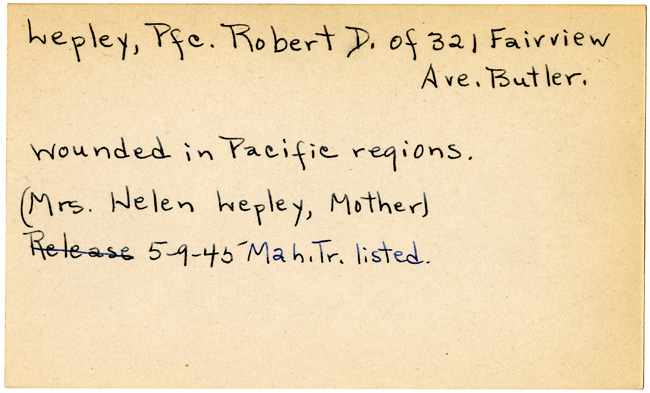 Lepley, Pfc. Robert D. of 321 Fairview
Ave. Butler.
wounded in Pacific regions.
(Mrs. Helen Lepley, Mother)
Release 5-9-45 Mah.Tr. listed.